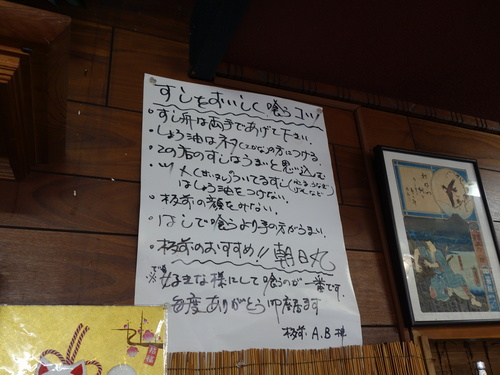 すしをおいしく喰うコツ
・すし舟は両手であげて下さい.
・しょう油はネタ(さかな)の方につける.
・この店のすしはうまいと思い込む
・ツメ(甘いタレ)ついてるすし
はしょう油をつけない.
・板前の顔をみない.
・はしで喰うより手の方がうまい.
・板前のおすすめ!! 朝日丸
※好きな様にして喰うのが一番です.
毎度ありがとう御座います
板前 A.B